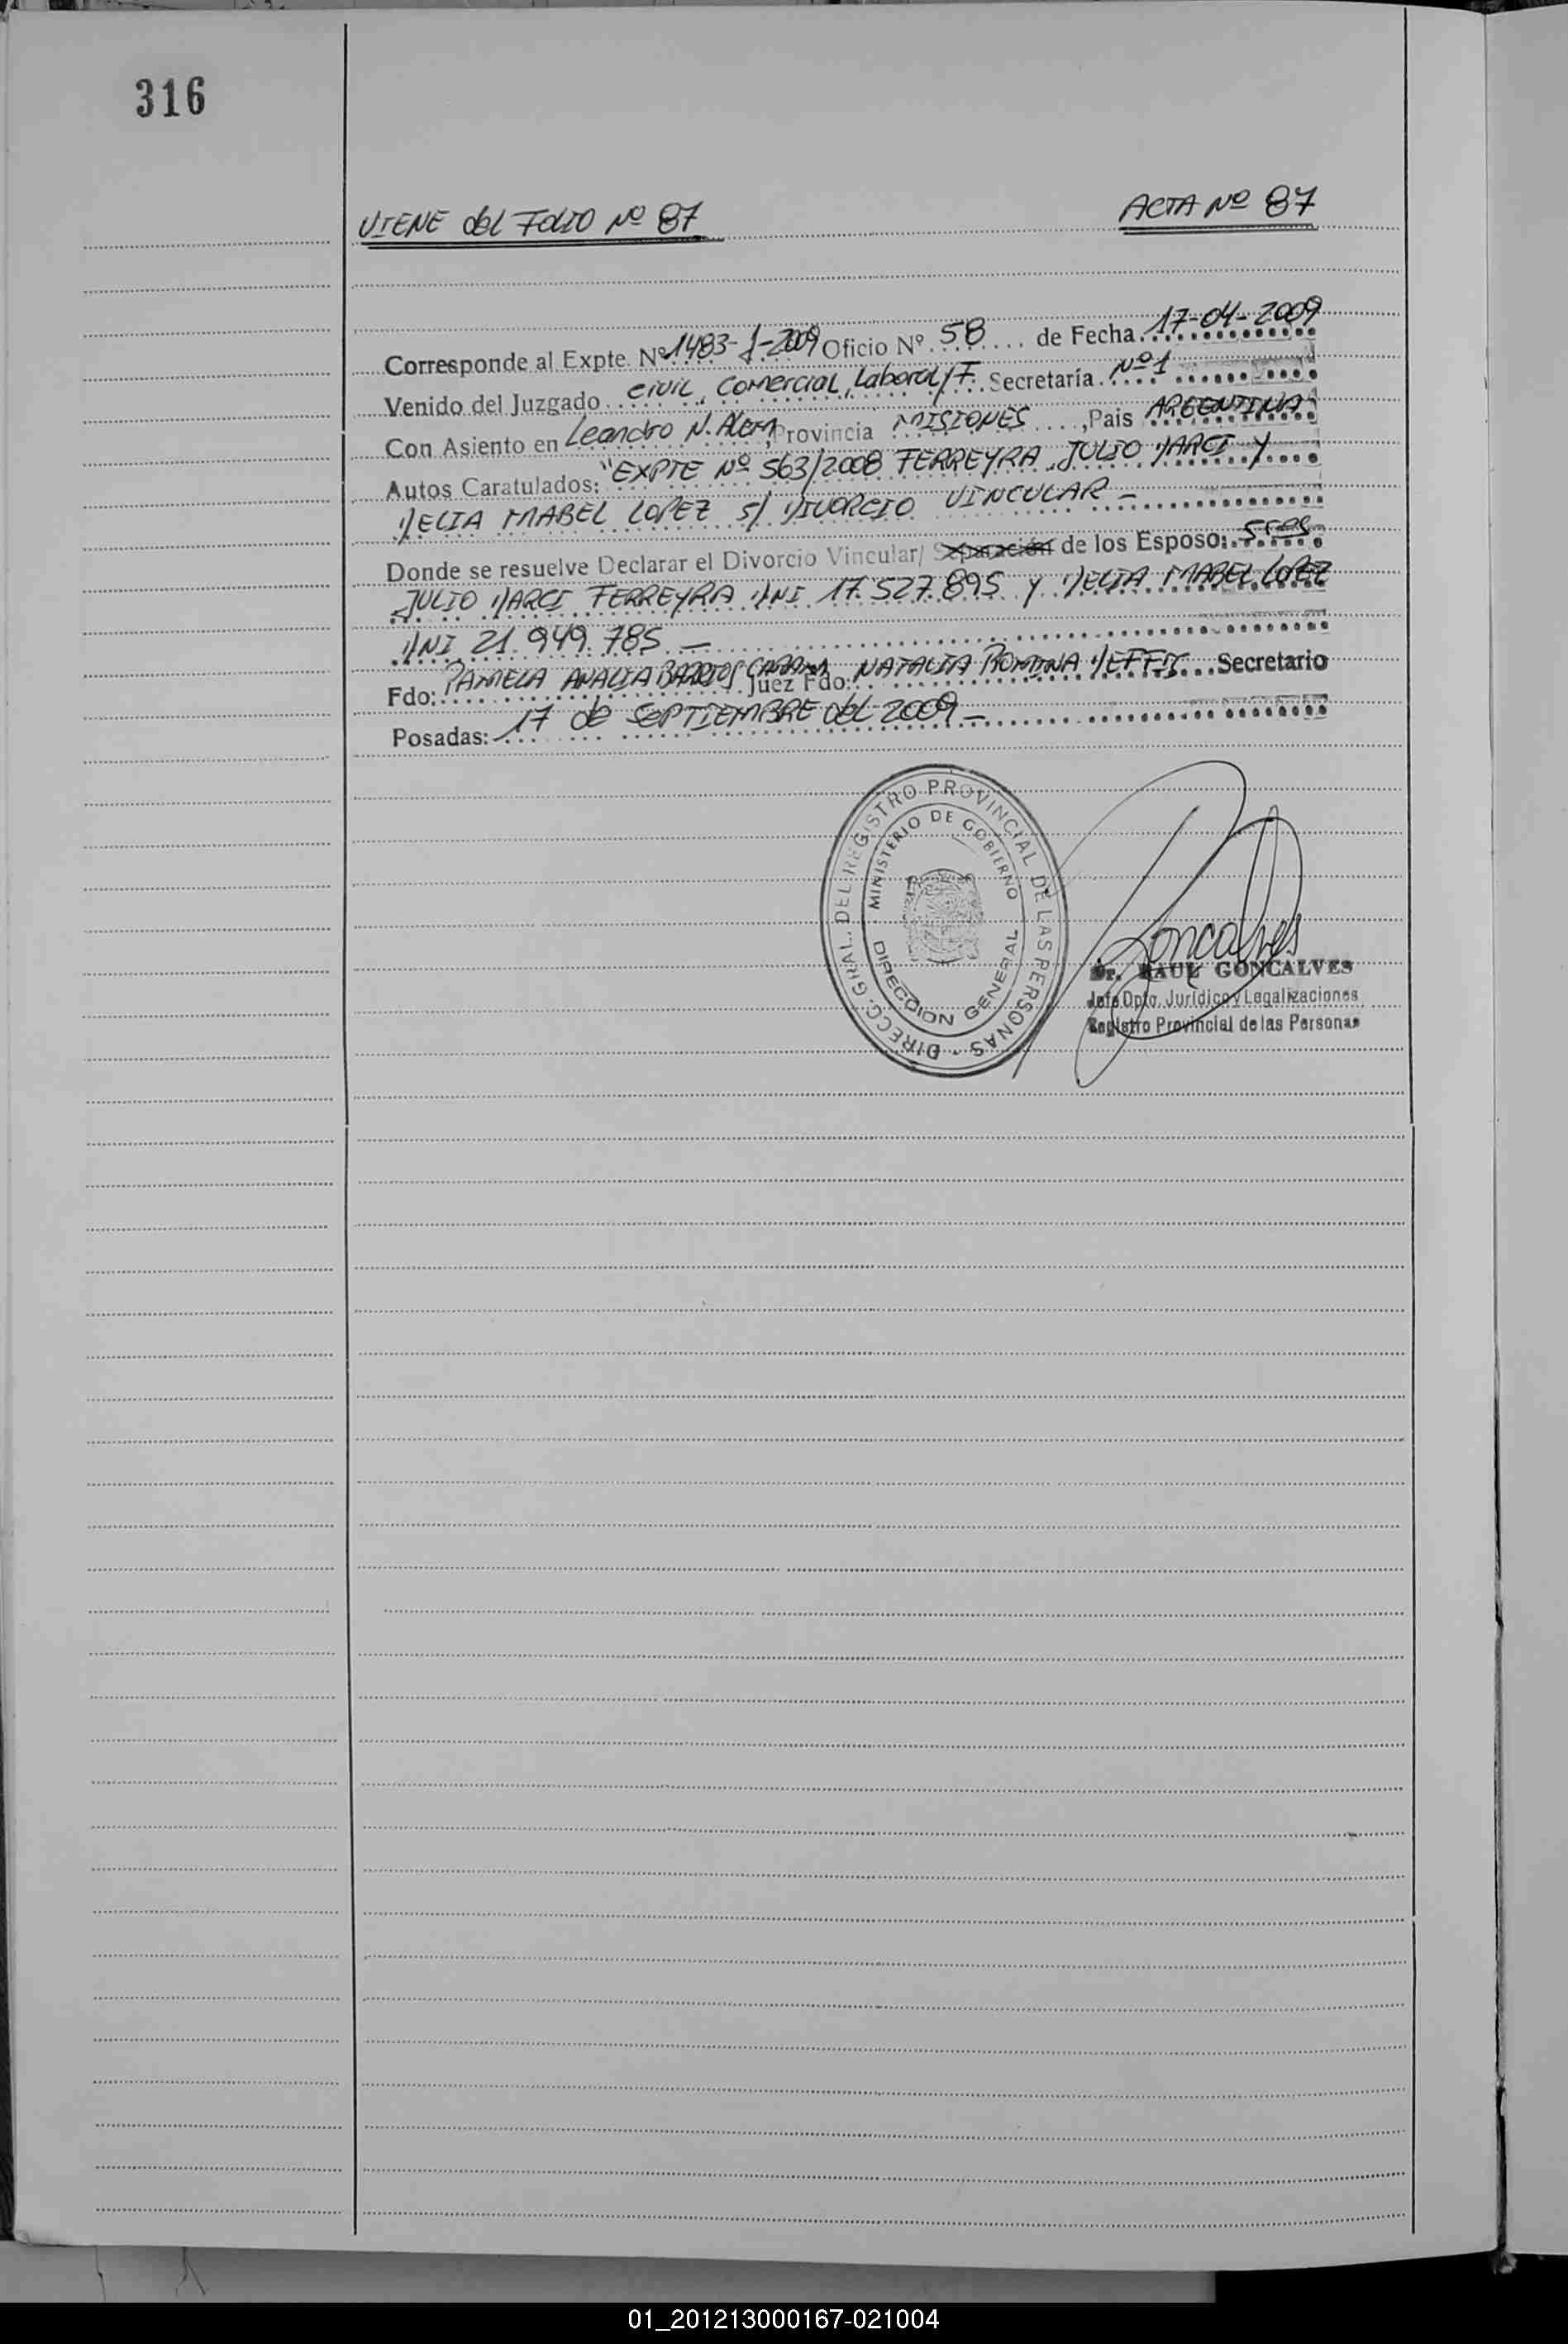 316
VIENE del FOLIO Nº 87
ACTA Nº 87
Corresponde al Expte. Nº 1483-J-2009 Oficio Nº 58 de Fecha 17-04-2009
Venido del Juzgado CIVIL, COMERCIAL, Laboral y F. Secretaría Nº 1
Con Asiento en Leandro N. Alem, Provincia MISIONES, Pais ARGENTINA
Autos Caratulados: "EXPTE Nº 563/2008 FERREYRA JULIO DARCI Y
DELIA MABEL LOPEZ S/ DIVORCIO VINCULAR -
Donde se resuelve Declarar el Divorcio Vincular/ Separación de los Esposo: Sres
JULIO DARCI FERREYRA DNI 17.527.895 Y DELIA MABEL LOPEZ
DNI 21.949.785. -
Fdo: PAMELA ANALIA BARRIOS Juez Fdo: NATALIA ROMINA Secretario
Posadas: 17 de SEPTIEMBRE del 2009 -
DIRECC. GRAL. DEL REGISTRO PROVINCIAL DE LAS PERSONAS
MINISTERIO DE GOBIERNO
DIRECCION GENERAL
Goncalves
Dr. RAUL GONCALVES
Jefe Dpto. Jurídico y Legalizaciones
Registro Provincial de las Personas
01_201213000167-021004